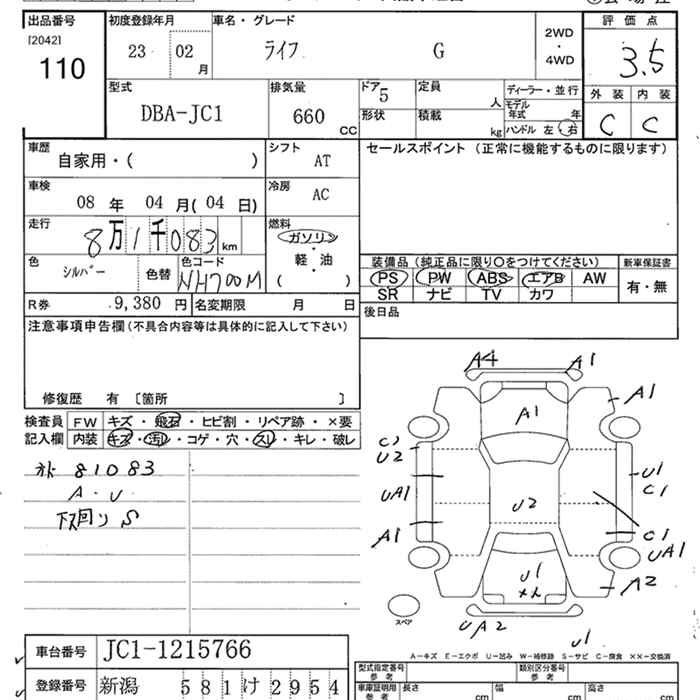 出品番号 初度登録年月 車名・グレード 評価点
[2042] 110 23 02月 ライフ G 2WD・4WD 3.5
型式 排気量 ドア 定員 ディーラー・並行 外装 内装
DBA-JC1 660CC 5 人 モデル年式 年 C C
形状 積載 kg ハンドル 左・右
車歴 シフト セールスポイント(正常に機能するものに限ります)
自家用・( ) AT
車検 冷房
08年 04月(04日) AC
走行 燃料
8万1千083km ガソリン
軽・油
( )
色 色替 色コード 装備品(純正品に限り○をつけてください) 新車保証書
シルバー NH700M PS PW ABS エアB AW 有・無
SR ナビ TV カワ
R券 9,380円 名変期限 月 日 後日品
注意事項申告欄(不具合内容等は具体的に記入して下さい)
修復歴 有 [箇所 ]
検査員 FW キズ・飛石・ヒビ割・リペア跡・×要
記入欄 内装 キズ・汚レ・コゲ・穴・スレ・キレ・破レ
81083
A・U
下回りS
A4 A1
A1 A1
C1
U2 U1
C1
UA1 U2
A1 C1
UA1
U1 A2
スペア
UA2 U1
A-キズ E-エクボ U-凹み W-補修跡 S-サビ C-腐食 ××-交換済
車台番号 JC1-1215766 型式指定番号 参考 類別区分番号 参考
登録番号 新潟 581け2954 車庫証明用 参考 長さ cm 幅 cm 高さ cm